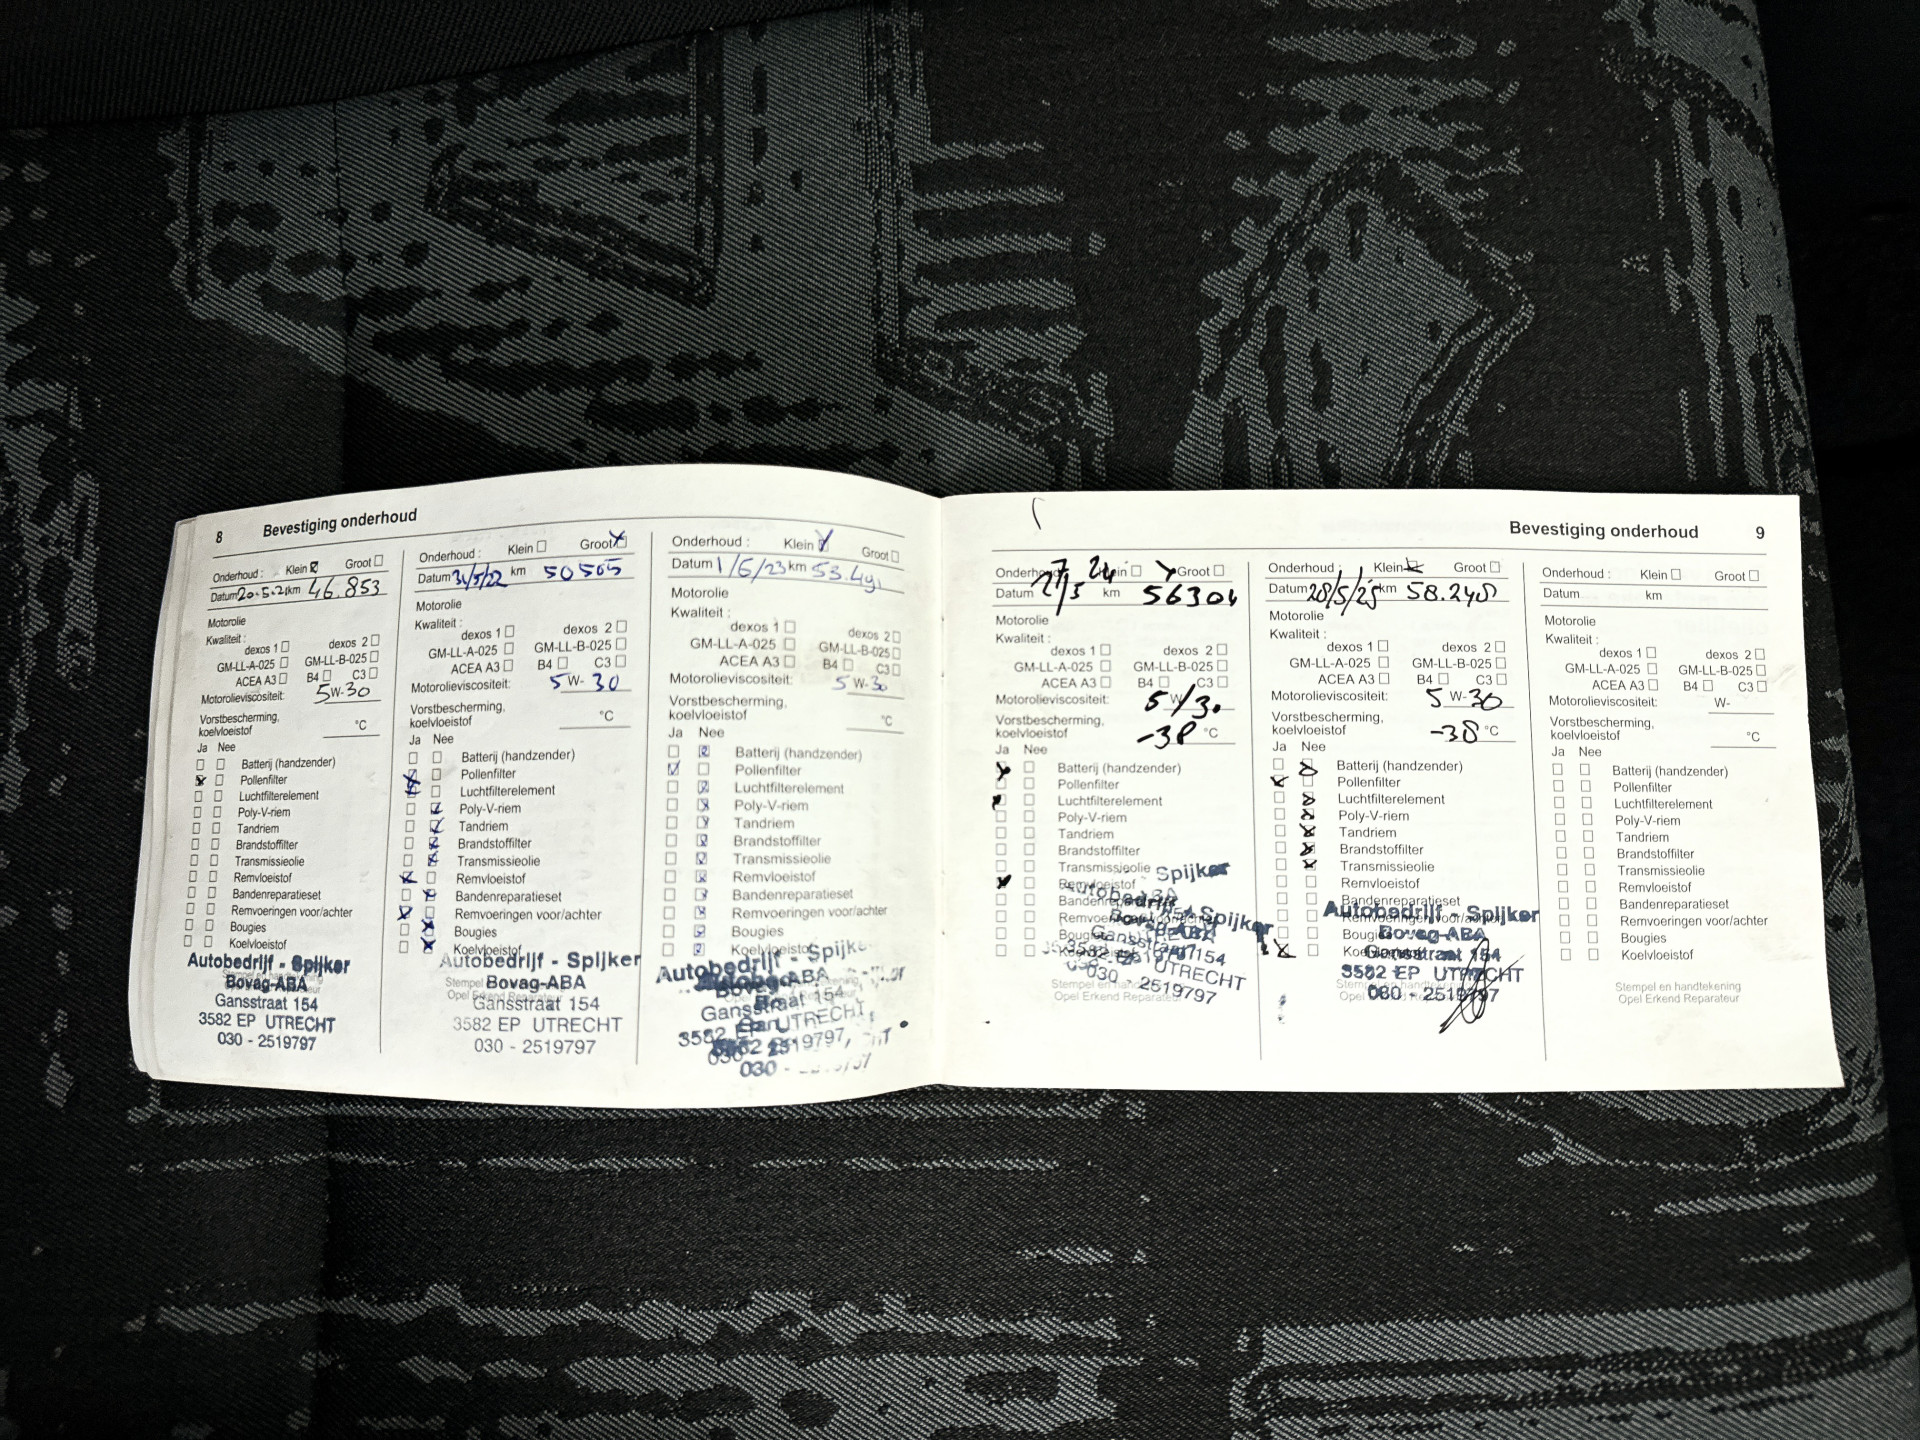 8 Bevestiging onderhoud
Onderhoud : Klein Groot
Datum 20-5-21 km 46.853
Motorolie
Kwaliteit :
dexos 1
GM-LL-A-025 GM-LL-B-025
ACEA A3 B4 C3
Motorolieviscositeit: 5 W-30
Vorstbescherming,
koelvloeistof °C
Ja Nee
Batterij (handzender)
Pollenfilter
Luchtfilterelement
Poly-V-riem
Tandriem
Brandstoffilter
Transmissieolie
Remvloeistof
Bandenreparatieset
Remvoeringen voor/achter
Bougies
Koelvloeistof
Autobedrijf - Spijker
Bovag-ABA
Gansstraat 154
3582 EP UTRECHT
030 - 2519797
Onderhoud : Klein Groot
Datum 31/5/22 km 50505
Motorolie
Kwaliteit :
dexos 1 dexos 2
GM-LL-A-025 GM-LL-B-025
ACEA A3 B4 C3
Motorolieviscositeit: 5 W- 30
Vorstbescherming,
koelvloeistof °C
Ja Nee
Batterij (handzender)
Pollenfilter
Luchtfilterelement
Poly-V-riem
Tandriem
Brandstoffilter
Transmissieolie
Remvloeistof
Bandenreparatieset
Remvoeringen voor/achter
Bougies
Koelvloeistof
Autobedrijf - Spijker
Stempel en
Bovag-ABA
Opel Erkend Reparateur
Gansstraat 154
3582 EP UTRECHT
030 - 2519797
Onderhoud : Klein Groot
Datum 1/6/23 km 53.491
Motorolie
Kwaliteit :
dexos 1 dexos 2
GM-LL-A-025 GM-LL-B-025
ACEA A3 B4 C3
Motorolieviscositeit: 5 W-30
Vorstbescherming,
koelvloeistof °C
Ja Nee
Batterij (handzender)
Pollenfilter
Luchtfilterelement
Poly-V-riem
Tandriem
Brandstoffilter
Transmissieolie
Remvloeistof
Bandenreparatieset
Remvoeringen voor/achter
Bougies
Koelvloeistof
Autobedrijf - Spijker
UTRECHT
030 -
Bevestiging onderhoud 9
Onderhoud Klein Groot
Datum 27/5 24 km 56304
Motorolie
Kwaliteit :
dexos 1 dexos 2
GM-LL-A-025 GM-LL-B-025
ACEA A3 B4 C3
Motorolieviscositeit: 5 W/30
Vorstbescherming,
koelvloeistof -38 °C
Ja Nee
Batterij (handzender)
Pollenfilter
Luchtfilterelement
Poly-V-riem
Tandriem
Brandstoffilter
Transmissieolie
Remvloeistof
Autobedrijf - Spijker
UTRECHT
030 - 2519797
Stempel en
Opel Erkend Reparateur
Onderhoud : Klein Groot
Datum 28/5/25 km 58.248
Motorolie
Kwaliteit :
dexos 1 dexos 2
GM-LL-A-025 GM-LL-B-025
ACEA A3 B4 C3
Motorolieviscositeit: 5 W-30
Vorstbescherming,
koelvloeistof -38 °C
Ja Nee
Batterij (handzender)
Pollenfilter
Luchtfilterelement
Poly-V-riem
Tandriem
Brandstoffilter
Transmissieolie
Remvloeistof
Bandenreparatieset
Autobedrijf - Spijker
Bovag-ABA
Gansstraat 154
3582 EP UTRECHT
030 - 2519797
Onderhoud : Klein Groot
Datum km
Motorolie
Kwaliteit :
dexos 1 dexos 2
GM-LL-A-025 GM-LL-B-025
ACEA A3 B4 C3
Motorolieviscositeit: W-
Vorstbescherming,
koelvloeistof °C
Ja Nee
Batterij (handzender)
Pollenfilter
Luchtfilterelement
Poly-V-riem
Tandriem
Brandstoffilter
Transmissieolie
Remvloeistof
Bandenreparatieset
Remvoeringen voor/achter
Bougies
Koelvloeistof
Stempel en handtekening
Opel Erkend Reparateur